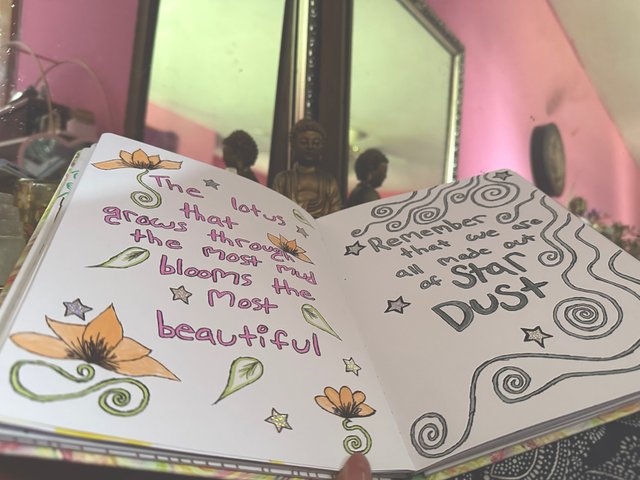 The lotus
that
grows through
the most mud
blooms the
most
beautiful
Remember
that we are
all made out
of Star
Dust